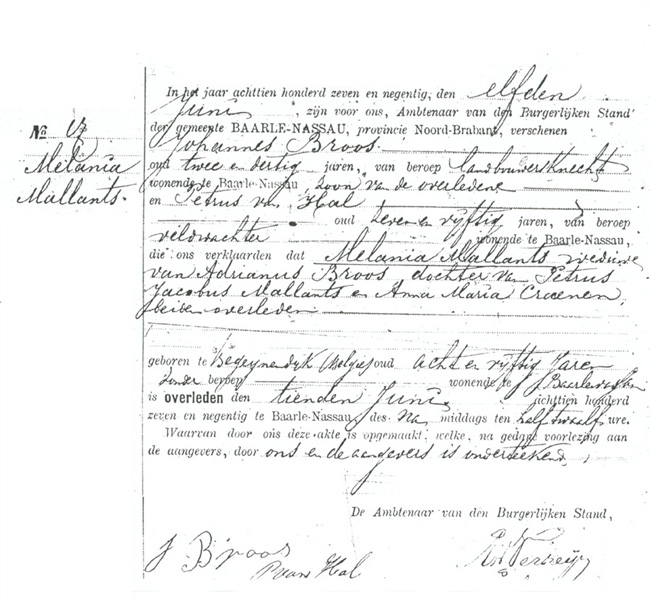 In het jaar achttien honderd zeven en negentig, den elfden
Juni , zijn voor ons, Ambtenaar van den Burgerlijken Stand
der gemeente BAARLE-NASSAU, provincie Noord-Brabant, verschenen
Johannes Broos.
oud twee en dertig jaren, van beroep landbouwersknecht
wonende te Baarle-Nassau, zoon van de overledene
en Petrus van Hal
oud zeven en vijftig jaren, van beroep
veldwachter wonende te Baarle-Nassau,
die ons verklaarden dat Melania Mallants weduwe
van Adrianus Broos, dochter van Petrus
Jacobus Mallants en Anna Maria Croenen,
beiden overleden
geboren te (België) oud acht en vijftig Jaren
zonder beroep wonende te Baarle-Nassau
is overleden den tienden Juni achttien honderd
zeven en negentig te Baarle-Nassau, des Na middags ten half twaalf ure.
Waarvan door ons deze akte is opgemaakt, welke, na gedane voorlezing aan
de aangevers, door ons en de aangevers is onderteekend.
De Ambtenaar van den Burgerlijken Stand,
J Broos
P van Hal
No 17
Melania
Mallants.